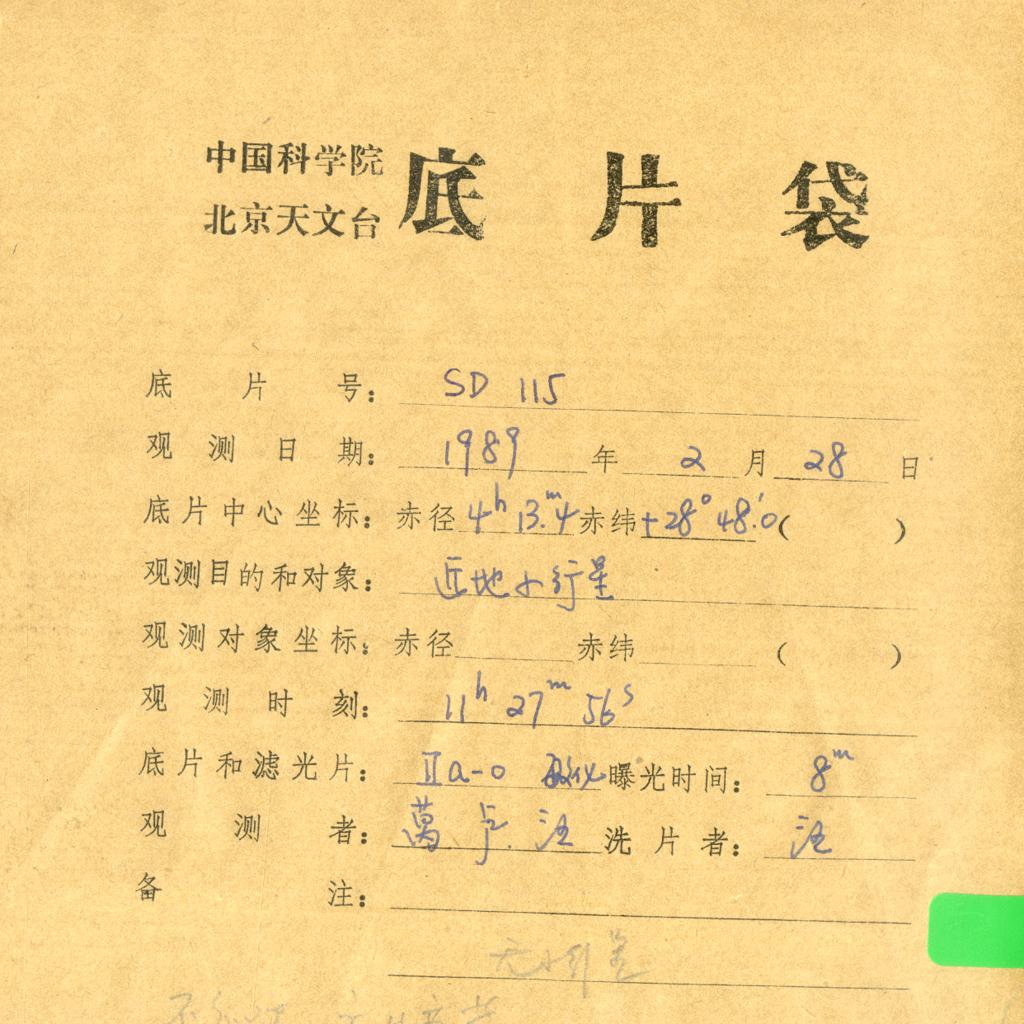 中国科学院
北京天文台
底片袋
底片号：SD 115
观测日期：1989年2月28日
底片中心坐标：赤径4ʰ13.ᵐ4赤纬+28°48.′0（ ）
观测目的和对象：近地小行星
观测对象坐标：赤径 赤纬 （ ）
观测时刻：11ʰ27ᵐ56ˢ
底片和滤光片：Ⅱa-o 敏化曝光时间：8ᵐ
观测者：萬 卢. 汪 洗片者：汪
备注：
无小行星